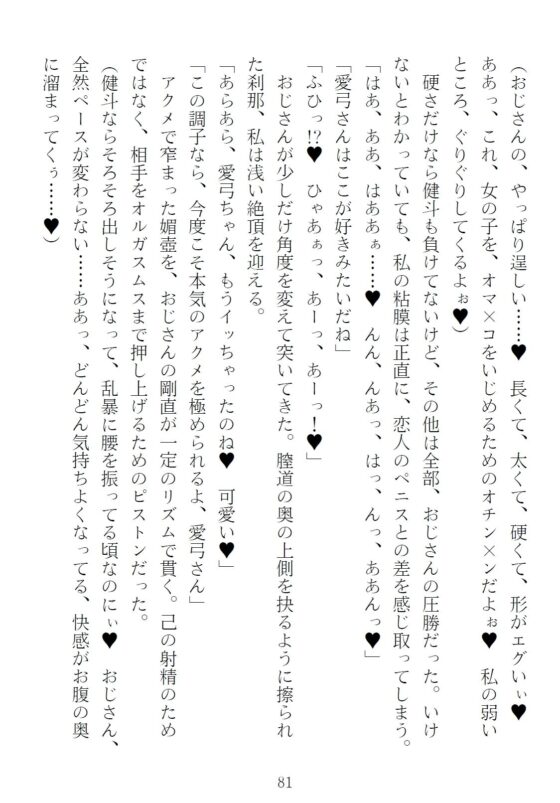 (おじさんの、やっぱり逞しい……♥　長くて、太くて、硬くて、形がエグいぃ♥
ああっ、これ、女の子を、オマ×コをいじめるためのオチン×ンだよぉ♥　私の弱い
ところ、ぐりぐりしてくるよぉ♥)
硬さだけなら健斗も負けてないけど、その他は全部、おじさんの圧勝だった。いけ
ないとわかっていても、私の粘膜は正直に、恋人のペニスとの差を感じ取ってしまう。
「はあ、ああ、はああぁ……♥　んん、んあっ、はっ、んっ、ああんっ♥」
「愛弓さんはここが好きみたいだね」
「ふひっ!?♥　ひゃあぁっ、あーっ、あーっ！♥」
おじさんが少しだけ角度を変えて突いてきた。膣道の奥の上側を抉るように擦られ
た刹那、私は浅い絶頂を迎える。
「あらあら、愛弓ちゃん、もうイッちゃったのね♥　可愛い♥」
「この調子なら、今度こそ本気のアクメを極められるよ、愛弓さん」
アクメで窄まった媚壺を、おじさんの剛直が一定のリズムで貫く。己の射精のため
ではなく、相手をオルガスムスまで押し上げるためのピストンだった。
(健斗ならそろそろ出しそうになって、乱暴に腰を振ってる頃なのにぃ♥　おじさん、
全然ペースが変わらない……ああっ、どんどん気持ちよくなってる、快感がお腹の奥
に溜まってくぅ……♥)
81